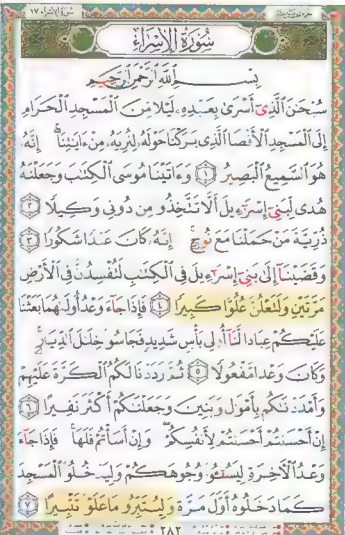 سُورَةُ الإِسْرَاء ١٧
سُورَةُ الإِسْرَاءِ
بِسْمِ اللَّهِ الرَّحْمَٰنِ الرَّحِيمِ
سُبْحَٰنَ الَّذِي أَسْرَىٰ بِعَبْدِهِ لَيْلًا مِّنَ الْمَسْجِدِ الْحَرَامِ
إِلَى الْمَسْجِدِ الْأَقْصَا الَّذِي بَٰرَكْنَا حَوْلَهُ لِنُرِيَهُ مِنْ ءَايَٰتِنَا إِنَّهُ
هُوَ السَّمِيعُ الْبَصِيرُ ١ وَءَاتَيْنَا مُوسَى الْكِتَٰبَ وَجَعَلْنَٰهُ
هُدًى لِّبَنِي إِسْرَٰءِيلَ أَلَّا تَتَّخِذُوا مِن دُونِي وَكِيلًا ٢
ذُرِّيَّةَ مَنْ حَمَلْنَا مَعَ نُوحٍ إِنَّهُ كَانَ عَبْدًا شَكُورًا ٣
وَقَضَيْنَا إِلَىٰ بَنِي إِسْرَٰءِيلَ فِي الْكِتَٰبِ لَتُفْسِدُنَّ فِي الْأَرْضِ
مَرَّتَيْنِ وَلَتَعْلُنَّ عُلُوًّا كَبِيرًا ٤ فَإِذَا جَاءَ وَعْدُ أُولَىٰهُمَا بَعَثْنَا
عَلَيْكُمْ عِبَادًا لَّنَا أُولِي بَأْسٍ شَدِيدٍ فَجَاسُوا خِلَٰلَ الدِّيَارِ
وَكَانَ وَعْدًا مَّفْعُولًا ٥ ثُمَّ رَدَدْنَا لَكُمُ الْكَرَّةَ عَلَيْهِمْ
وَأَمْدَدْنَٰكُم بِأَمْوَٰلٍ وَبَنِينَ وَجَعَلْنَٰكُمْ أَكْثَرَ نَفِيرًا ٦
إِنْ أَحْسَنتُمْ أَحْسَنتُمْ لِأَنفُسِكُمْ وَإِنْ أَسَأْتُمْ فَلَهَا فَإِذَا جَاءَ
وَعْدُ الْأَخِرَةِ لِيَسُئُوا وُجُوهَكُمْ وَلِيَدْخُلُوا الْمَسْجِدَ
كَمَا دَخَلُوهُ أَوَّلَ مَرَّةٍ وَلِيُتَبِّرُوا مَا عَلَوْا تَتْبِيرًا ٧
٢٨٢